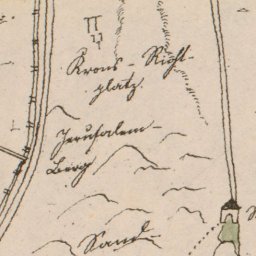 Krons-Richt-
platz.
Jerusalem-
Berg
Sand-